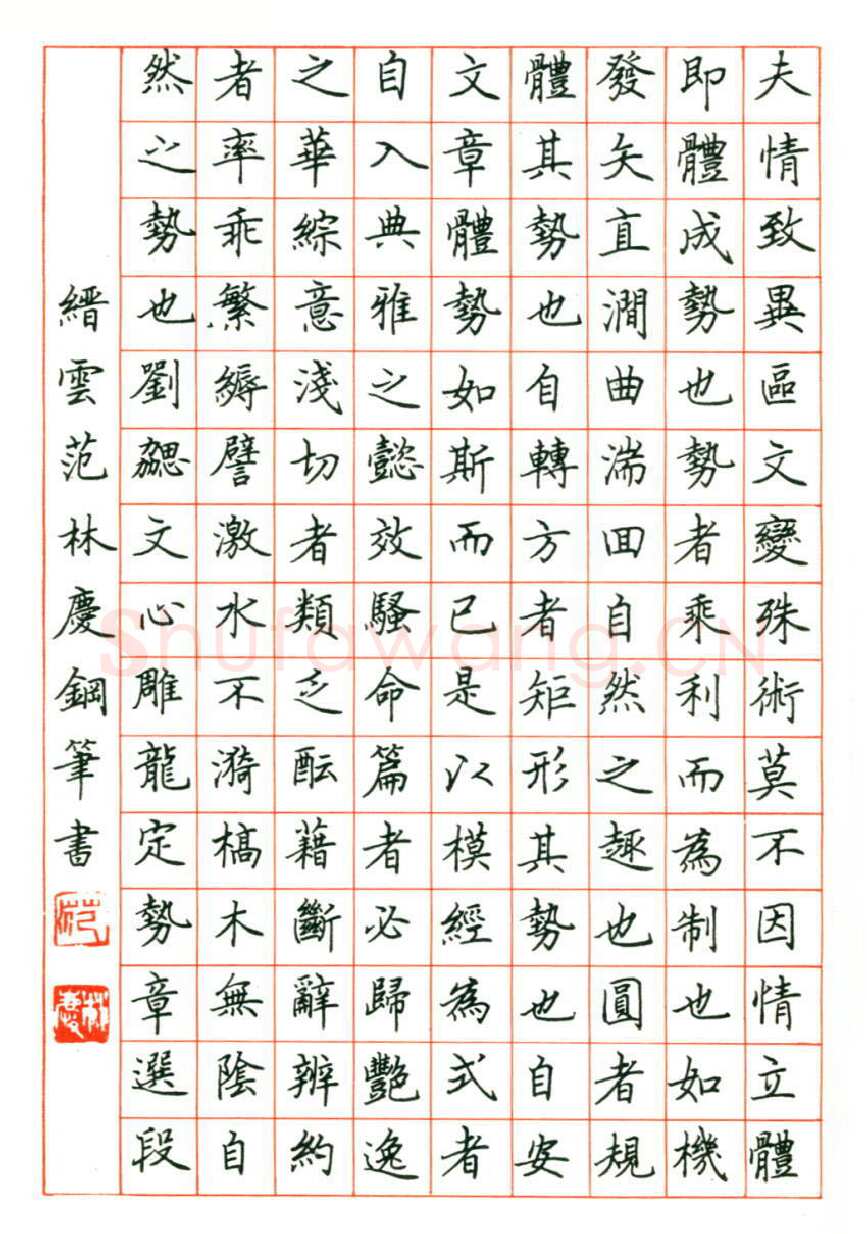 夫情致異區文變殊術莫不因情立體
即體成勢也勢者乘利而為制也如機
發矢直澗曲湍回自然之趣也圓者規
體其勢也自轉方者矩形其勢也自安
文章體勢如斯而已是以模經為式者
自入典雅之懿效騷命篇者必歸艷逸
之華綜意淺切者類乏醞藉斷辭辨約
者率乖繁縟譬激水不漪槁木無陰自
然之勢也劉勰文心雕龍定勢章選段
縉雲范林慶鋼筆書
范
林慶
Shufawang.CN